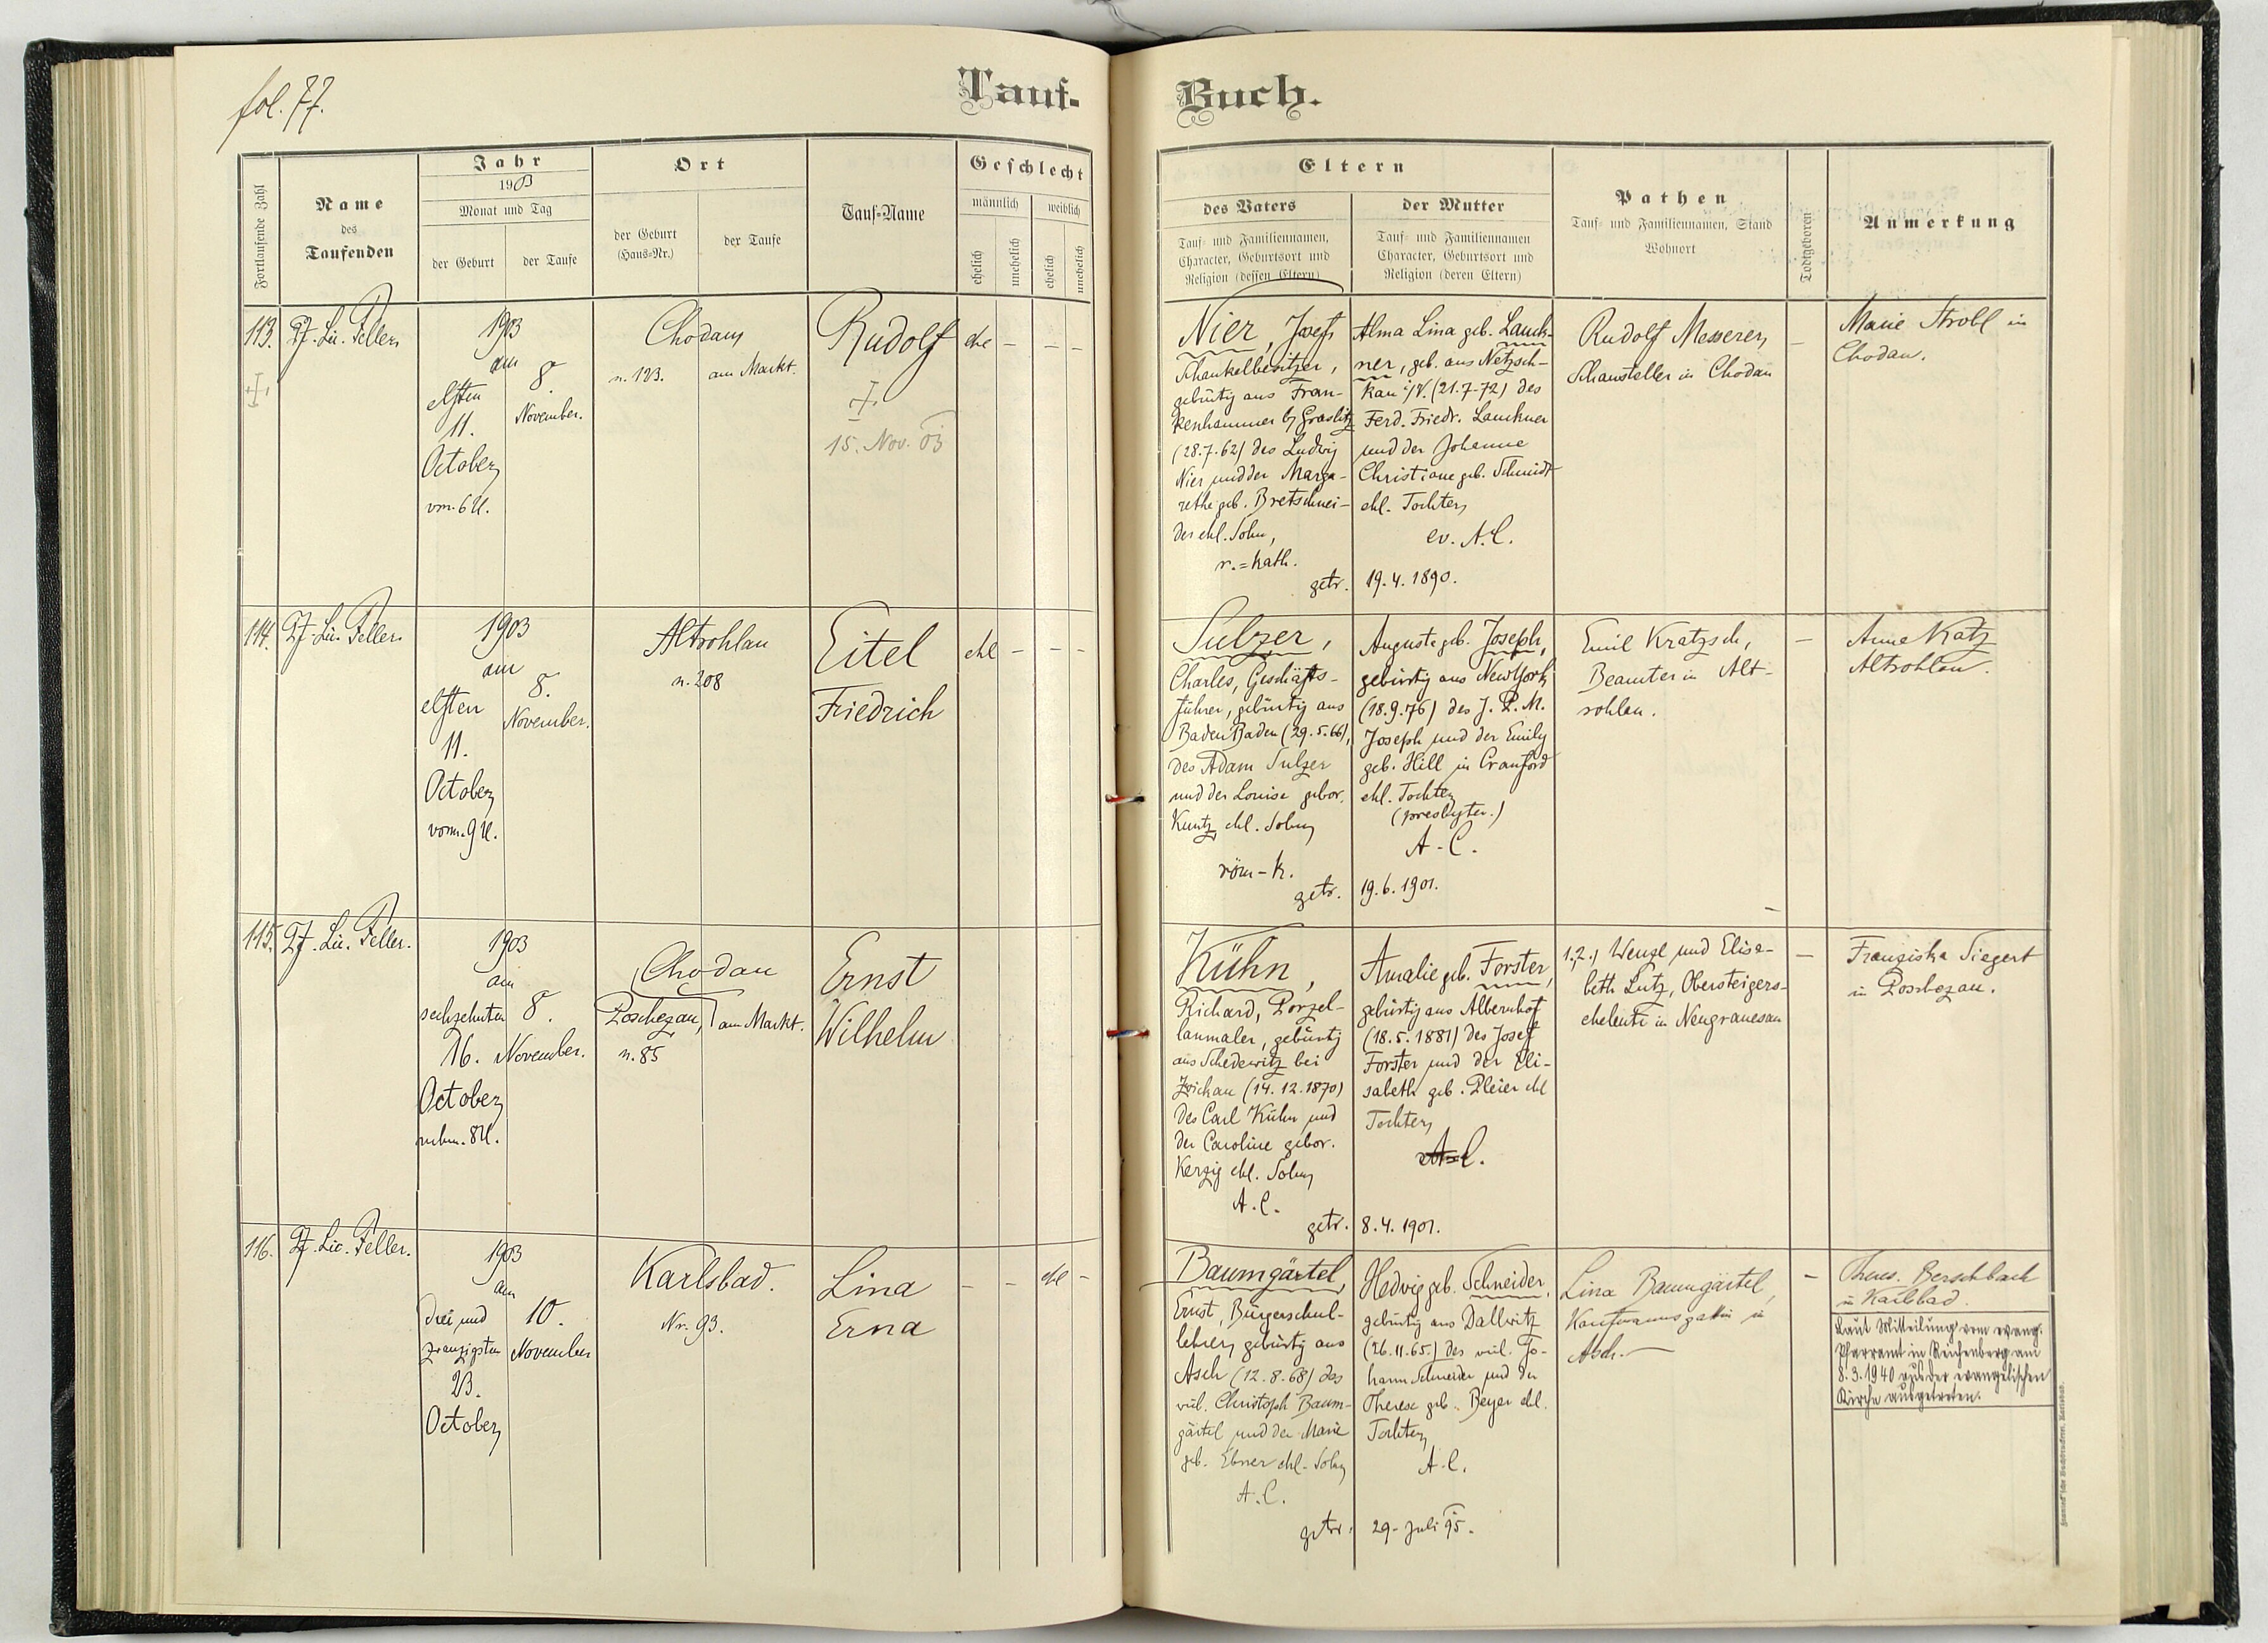 fol. 77.
Tauf-
Fortlaufende Zahl
Name
des
Taufenden
Jahr
1903
Monat und Tag
der Geburt
der Taufe
Ort
der Geburt
(Haus-Nr.)
der Taufe
Tauf-Name
Geschlecht
männlich
weiblich
ehelich
unehelich
ehelich
unehelich
113.
Pf. Lic. Feller
1903
am
elften
11.
October
vm. 6 U.
8.
November.
Chodau
n. 123.
am Markt.
Rudolf
15. Nov. 03
ehe
–
–
–
114.
Pf. Lic. Feller.
1903
am
elften
11.
October
vorm. 9 U.
8.
November.
Altrohlau
n. 208
Eitel
Friedrich
ehl
–
–
–
115.
Pf. Lic. Feller.
1903
am
sechzehnten
16.
October
nchm. 8 U.
8.
November.
Chodau
Poschezau,
n. 85
am Markt.
Ernst
Wilhelm
116.
Pf. Lic. Feller.
1903
am
drei und
zwanzigsten
23.
October
10.
November
Karlsbad.
Nr. 93.
Lina
Erna
–
–
ehl
–
Buch.
Eltern
des Vaters
Tauf- und Familiennamen,
Character, Geburtsort und
Religion (dessen Eltern)
der Mutter
Tauf- und Familiennamen
Character, Geburtsort und
Religion (deren Eltern)
Pathen
Tauf- und Familiennamen, Stand
Wohnort
Todtgeboren
Anmerkung
Nier, Josef
Schaukelbesitzer,
gebürtig aus Fran-
kenhammer b/ Graslitz
(28.7.62) des Ludwig
Nier und der Marga-
rethe geb. Bretschnei-
der ehl. Sohn,
r.=kath.
Alma Lina geb. Lauck-
ner, geb. aus Netzsch-
kau i/V. (21.7.72) des
Ferd. Friedr. Lauckner
und der Johanne
Christiane geb. Schmidt
ehl. Tochter
ev. A.C.
getr. 19.4.1890.
Rudolf Messerer
Schausteller in Chodau
–
Marie Strobl in
Chodau.
Sulzer,
Charles, Geschäfts-
führer, gebürtig aus
Baden Baden (29.5.66),
des Adam Sulzer
und der Louise gebor.
Kuntz ehl. Sohn
röm-k.
Auguste geb. Joseph,
gebürtig aus New York
(18.9.76) des J. P. M.
Joseph und der Emily
geb. Hill in Cranford
ehl. Tochter
(presbyter.)
A.C.
getr. 19.6.1901.
Emil Kratzsch,
Beamter in Alt-
rohlau.
–
Anna Katz
Altrohlau.
Kühn,
Richard, Porzel-
lanmaler, gebürtig
aus Schedewitz bei
Zwickau (14.12.1870)
des Carl Kühn und
der Caroline gebor.
Kerzig ehl. Sohn
A.C.
Amalie geb. Forster,
gebürtig aus Albernhof
(18.5.1881) des Josef
Forster und der Eli-
sabeth geb. Pleier ehl
Tochter
A.C.
getr. 8.4.1901.
1.,2., Wenzl und Elisa-
beth Lutz, Obersteigers-
eheleute in Neugranesau
–
Franziska Siegert
in Poschezau.
Baumgärtel,
Ernst, Bürgerschul-
lehrer, gebürtig aus
Asch (12.8.68) des
weil. Christoph Baum-
gärtel und der Marie
geb. Ebner ehl. Sohn
A.C.
Hedwig geb. Schneider,
gebürtig aus Dallwitz
(26.11.65.) des weil. Jo-
hann Schneider und der
Therese geb. Beyer ehl.
Tochter
A.C.
getr. 29. Juli 95.
Lina Baumgärtel,
Kaufmannsgattin in
Asch.
–
Theres. Berschback
in Karlsbad.
Laut Mitteilung vom evang.
Pfarramt in Reichenberg am
8.3.1940 aus der evangelischen
Kirche ausgetreten.